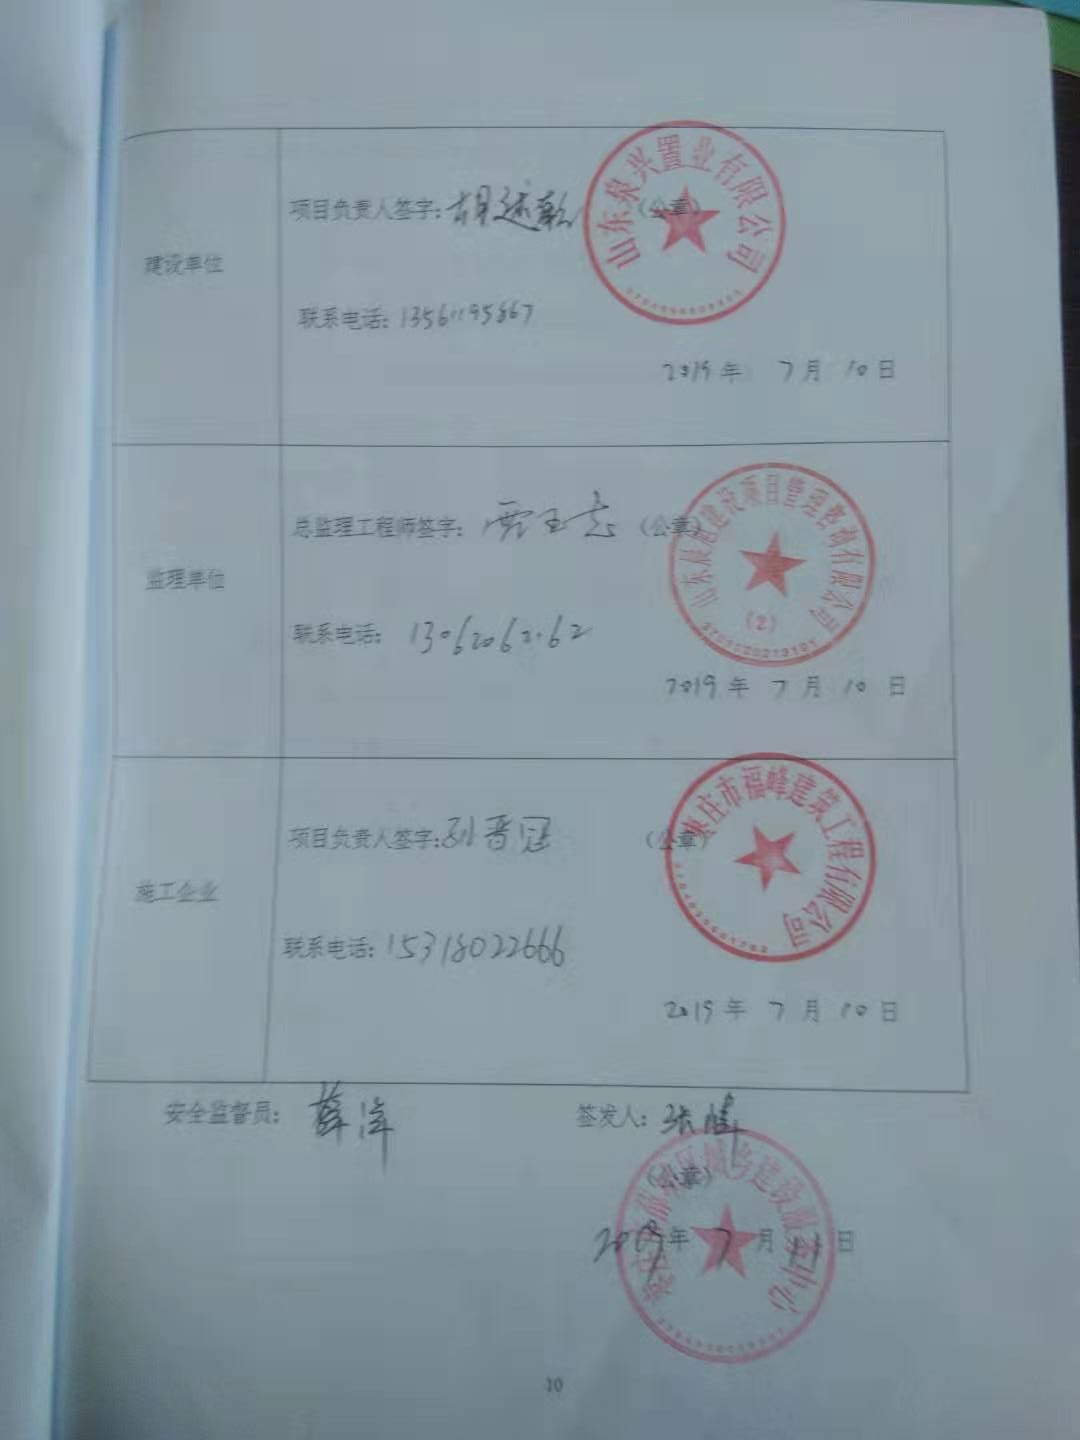 山东泉兴置业有限公司
项目负责人签字: (公章)
建设单位
联系电话: 13561195867
2019年 7月 10日
山东晨旭建设项目管理咨询有限公司
总监理工程师签字: 贾玉志 (公章)
(2)
监理单位
联系电话: 13062062162
2019年 7月 10日
枣庄市福峰建筑工程有限公司
项目负责人签字: 孙晋冠 (公章)
施工企业
联系电话: 15318022666
2019年 7月 10日
安全监督员: 薛洋 签发人: 张
(公章)
城乡建设服务中心
2019年 7月 日
10